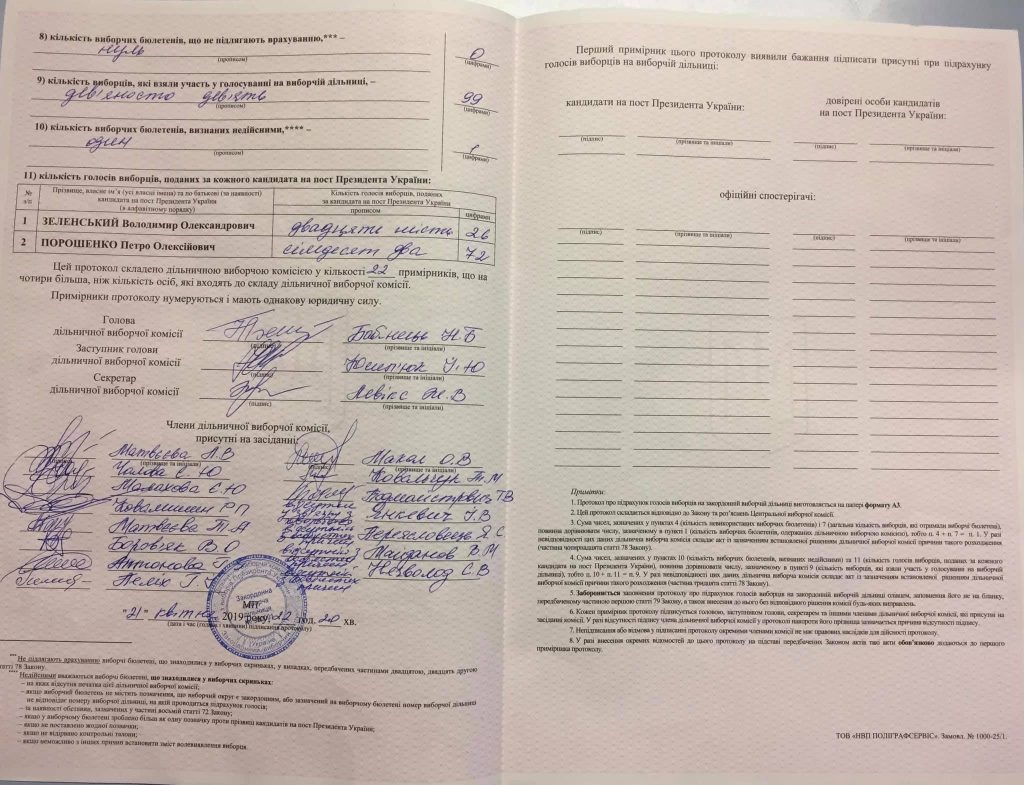 8) кількість виборчих бюлетенів, що не підлягають врахуванню,*** –
нуль 0
(прописом) (цифрами)
9) кількість виборців, які взяли участь у голосуванні на виборчій дільниці, –
дев'яносто дев'ять 99
(прописом) (цифрами)
10) кількість виборчих бюлетенів, визнаних недійсними,**** –
один 1
(прописом) (цифрами)
11) кількість голосів виборців, поданих за кожного кандидата на пост Президента України:
№ з/п
Прізвище, власне ім'я (усі власні імена) та по батькові (за наявності)
кандидата на пост Президента України
(в алфавітному порядку)
Кількість голосів виборців, поданих
за кандидата на пост Президента України
прописом цифрами
1 ЗЕЛЕНСЬКИЙ Володимир Олександрович двадцять шість 26
2 ПОРОШЕНКО Петро Олексійович сімдесят два 72
Цей протокол складено дільничною виборчою комісією у кількості 22 примірників, що на
чотири більша, ніж кількість осіб, які входять до складу дільничної виборчої комісії.
Примірники протоколу нумеруються і мають однакову юридичну силу.
Голова
дільничної виборчої комісії Н.Б
(підпис) (прізвище та ініціали)
Заступник голови
дільничної виборчої комісії
(підпис) (прізвище та ініціали)
Секретар
дільничної виборчої комісії
(підпис) (прізвище та ініціали)
Члени дільничної виборчої комісії,
присутні на засіданні:
Матвєєва Л.В Макал О.В
(прізвище та ініціали) (прізвище та ініціали)
С.Ю Ковальчук Т.М
Малахова Є.Ю Т.В
Р.П Янкевич І.В
Матвєєва Т.А Я.С
Боров'як В.О Майданов В.М
Антонова С.В
"21" квітня 2019 року 22 год. 20 хв.
(дата і час (година, хвилини) підписання протоколу)
*** Не підлягають врахуванню виборчі бюлетені, що знаходилися у виборчих скриньках, у випадках, передбачених частинами двадцятою, двадцять другою
статті 78 Закону.
**** Недійсними вважаються виборчі бюлетені, що знаходилися у виборчих скриньках:
– на яких відсутня печатка цієї дільничної виборчої комісії;
– якщо виборчий бюлетень не містить позначення, що виборчий округ є закордонним, або зазначений на виборчому бюлетені номер виборчої дільниці
не відповідає номеру виборчої дільниці, на якій проводиться підрахунок голосів;
– за наявності обставин, зазначених у частині восьмій статті 72 Закону;
– якщо у виборчому бюлетені зроблено більш як одну позначку проти прізвищ кандидатів на пост Президента України;
– якщо не поставлено жодної позначки;
– якщо не відірвано контрольні талони;
– якщо неможливо з інших причин встановити зміст волевиявлення виборця.
Перший примірник цього протоколу виявили бажання підписати присутні при підрахунку
голосів виборців на виборчій дільниці:
кандидати на пост Президента України:
(підпис) (прізвище та ініціали)
довірені особи кандидатів
на пост Президента України:
(підпис) (прізвище та ініціали)
офіційні спостерігачі:
(підпис) (прізвище та ініціали) (підпис) (прізвище та ініціали)
Примітки:
1. Протокол про підрахунок голосів виборців на закордонній виборчій дільниці виготовляється на папері формату А3.
2. Цей протокол складається відповідно до Закону та роз'яснень Центральної виборчої комісії.
3. Сума чисел, зазначених у пунктах 4 (кількість невикористаних виборчих бюлетенів) і 7 (загальна кількість виборців, які отримали виборчі бюлетені),
повинна дорівнювати числу, зазначеному у пункті 1 (кількість виборчих бюлетенів, одержаних дільничною виборчою комісією), тобто п. 4 + п. 7 = п. 1. У разі
невідповідності цих даних дільнична виборча комісія складає акт із зазначенням встановленої рішенням дільничної виборчої комісії причини такого розходження
(частина чотирнадцята статті 78 Закону).
4. Сума чисел, зазначених у пунктах 10 (кількість виборчих бюлетенів, визнаних недійсними) та 11 (кількість голосів виборців, поданих за кожного
кандидата на пост Президента України), повинна дорівнювати числу, зазначеному в пункті 9 (кількість виборців, які взяли участь у голосуванні на виборчій
дільниці), тобто п. 10 + п. 11 = п. 9. У разі невідповідності цих даних дільнична виборча комісія складає акт із зазначенням встановленої рішенням дільничної
виборчої комісії причини такого розходження (частина тридцята статті 78 Закону).
5. Забороняється заповнення протоколу про підрахунок голосів виборців на закордонній виборчій дільниці олівцем, заповнення його не на бланку,
передбаченому частиною першою статті 79 Закону, а також внесення до нього без відповідного рішення комісії будь-яких виправлень.
6. Кожен примірник протоколу підписується головою, заступником голови, секретарем та іншими членами дільничної виборчої комісії, які присутні на
засіданні комісії. У разі відсутності підпису члена дільничної виборчої комісії у протоколі навпроти його прізвища зазначається причина відсутності підпису.
7. Непідписання або відмова у підписанні протоколу окремими членами комісії не має правових наслідків для дійсності протоколу.
8. У разі внесення окремих відомостей до цього протоколу на підставі передбачених Законом актів такі акти обов'язково додаються до першого
примірника протоколу.
ТОВ «НВП ПОЛІГРАФСЕРВІС». Замовл. № 1000-25/1.